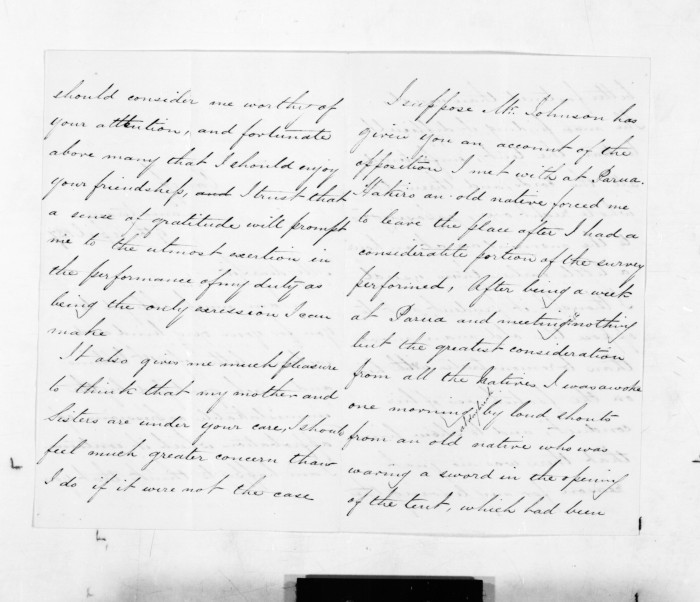 should consider me worthy of
your attention, and fortunate
above many that I should enjoy
your friendship, and I trust that
a sense of gratitude will prompt
me to the utmost exertion in
the performance of my duty as
being the only exression I can
make
It also gives me much pleasure
to think that my mother and
Sisters are under your care, I should
feel much greater concern than
I do if it were not the case
I suppose Mr. Johnson has
given you an account of the
opposition I met with at Parua.
an old native forced me
to leave the place after I had a
considerable portion of the survey
performed, After being a week
at Parua and meeting nothing
but the greatest consideration
from all the Natives I was awoke
one morning by loud shouts
from an old native who was
waving a sword in the opening
of the tent, which had been